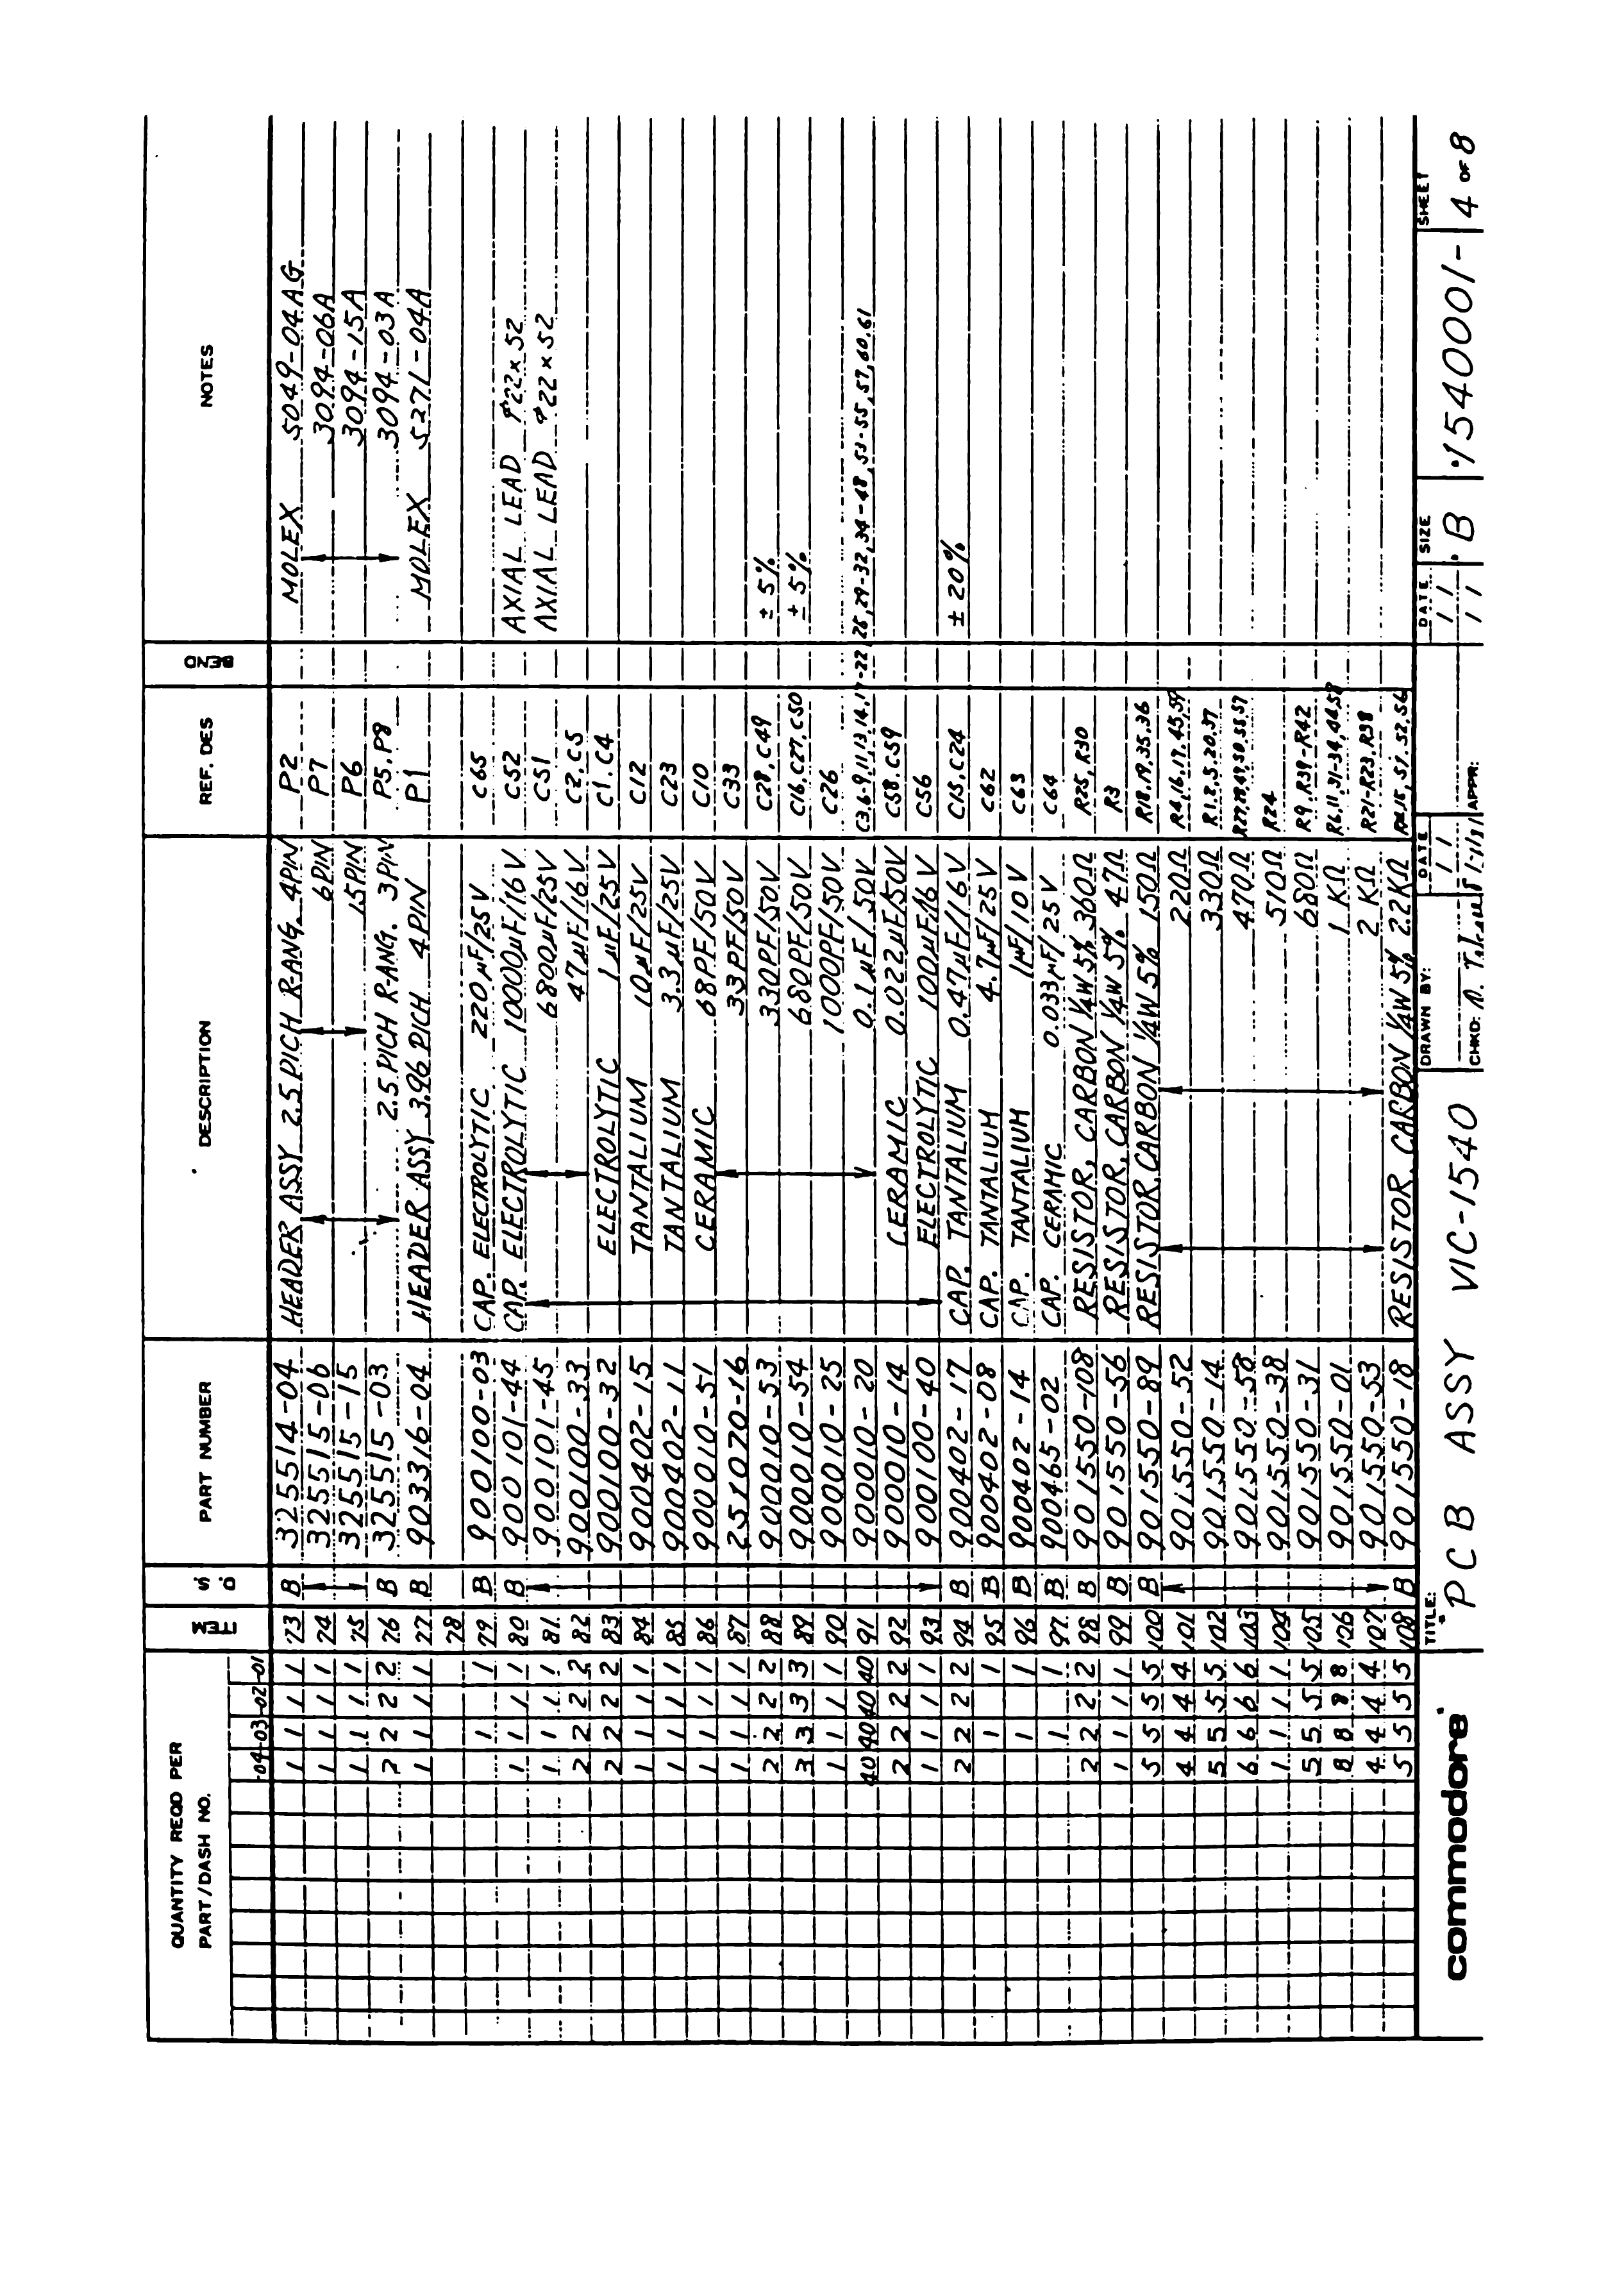 QUANTITY REQD PER PART/DASH NO. ITEM S. O PART NUMBER DESCRIPTION REF. DES NOTES
-04 -03 -02 -01
1 1 1 1 73 B 325514-04 HEADER ASSY 2.5 PICH R-ANG. 4PIN P2 MOLEX 5049-04AG
1 1 1 1 74 325515-06 6PIN P7 3094-06A
1 1 1 1 75 325515-15 15PIN P6 3094-15A
2 2 2 2 76 B 325515-03 2.5 PICH R-ANG. 3PIN P5, P8 3094-03A
1 1 1 1 77 B 903316-04 HEADER ASSY 3.96 PICH 4PIN P1 MOLEX 5271-04A
78
1 1 79 B 900100-03 CAP. ELECTROLYTIC 220µF/25V C65
1 1 1 1 80 B 900101-44 CAP. ELECTROLYTIC 10000µF/16V C52 AXIAL LEAD φ22×52
1 1 1 1 81 900101-45 6800µF/25V C51 AXIAL LEAD φ22×52
2 2 2 2 82 900100-33 47µF/16V C2, C5
2 2 2 2 83 900100-32 ELECTROLYTIC 1µF/25V C1, C4
1 1 1 1 84 900402-15 TANTALIUM 10µF/25V C12
1 1 1 1 85 900402-11 TANTALIUM 3.3µF/25V C23
1 1 1 1 86 900010-51 CERAMIC 68PF/50V C10
1 1 1 1 87 251070-16 33PF/50V C33
2 2 2 2 88 900010-53 330PF/50V C28, C49 ± 5%
3 3 3 3 89 900010-54 680PF/50V C16, C27, C50 ± 5%
1 1 1 1 90 900010-25 1000PF/50V C26
40 40 40 40 91 900010-20 0.1µF/50V C3,6-9,11,13,14,17-22 25,29-32,34-48,53-55,57,60,61
2 2 2 2 92 900010-14 CERAMIC 0.022µF/50V C58, C59
1 1 1 1 93 900100-40 ELECTROLYTIC 100µF/16V C56
2 2 2 2 94 B 900402-17 CAP. TANTALIUM 0.47µF/16V C15, C24 ± 20%
1 1 95 B 900402-08 CAP. TANTALIUM 4.7µF/25V C62
1 1 96 B 900402-14 CAP. TANTALIUM 1µF/10V C63
1 1 97 B 900465-02 CAP. CERAMIC 0.033µF/25V C64
2 2 2 2 98 B 901550-108 RESISTOR, CARBON ¼W 5% 360Ω R25, R30
1 1 1 1 99 B 901550-56 RESISTOR, CARBON ¼W 5% 47Ω R3
5 5 5 5 100 B 901550-89 RESISTOR, CARBON ¼W 5% 150Ω R18,19,35,36
4 4 4 4 101 901550-52 220Ω
5 5 5 5 102 901550-14 330Ω R1,2,5,20,37
6 6 6 6 103 901550-58 470Ω
1 1 1 1 104 901550-38 510Ω R24
5 5 5 5 105 901550-31 680Ω R9, R39-R42
8 8 8 8 106 901550-01 1 KΩ
4 4 4 4 107 901550-53 2 KΩ R21-R23, R38
5 5 5 5 108 B 901550-18 RESISTOR, CARBON ¼W 5% 2.2KΩ
commodore TITLE: PCB ASSY VIC-1540 DRAWN BY: DATE CHKD: APPR: DATE SIZE B 1540001- SHEET 4 OF 8